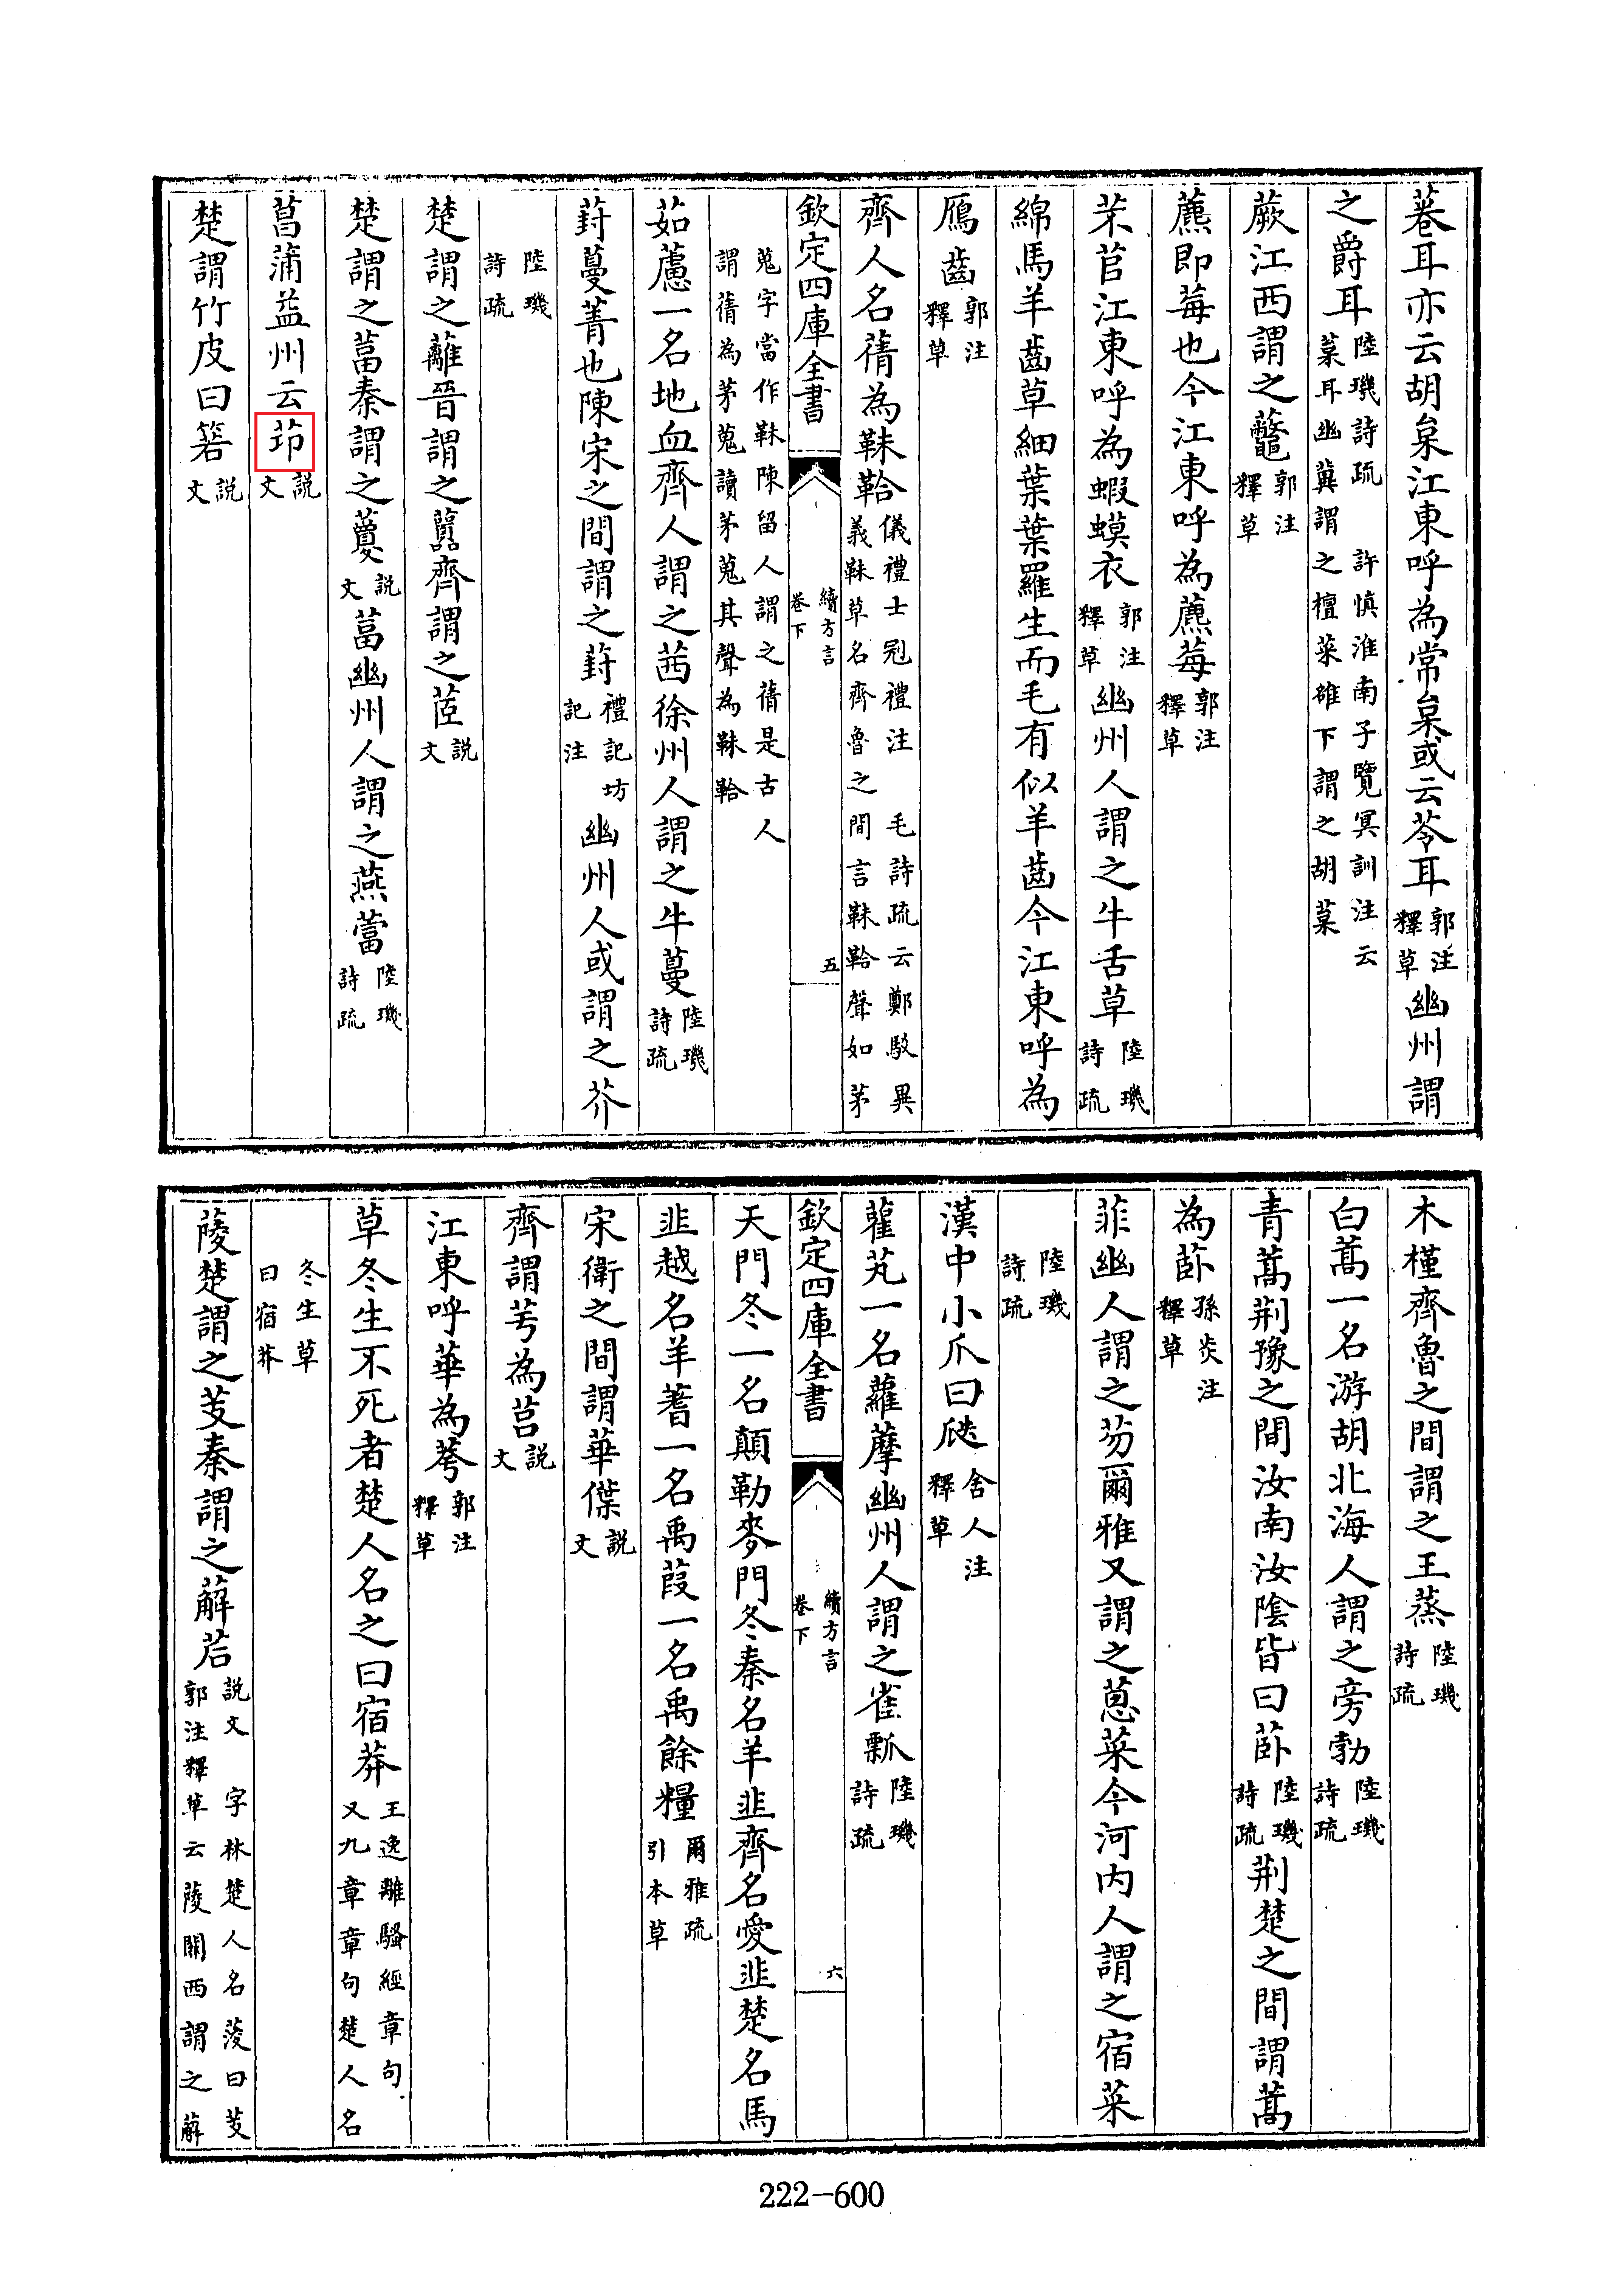 菤耳亦云胡枲江東呼為常枲或云苓耳郭注釋草幽州謂
之爵耳陸璣詩疏　許慎淮南子覽冥訓注云葈耳幽冀謂之檀菜雒下謂之胡葈
蕨江西謂之虌郭注釋草
藨即莓也今江東呼為藨莓郭注釋草
芣苢江東呼為蝦蟆衣郭注釋草幽州人謂之牛舌草陸璣詩疏
綿馬羊齒草細葉葉羅生而毛有似羊齒今江東呼為
鴈齒郭注釋草
齊人名蒨為韎韐儀禮士冠禮注　毛詩疏云鄭駁異義韎草名齊魯之間言韎韐聲如茅
欽定四庫全書　續方言卷下　五
蒐字當作韎陳留人謂之蒨是古人謂蒨為茅蒐讀茅蒐其聲為韎韐
茹藘一名地血齊人謂之茜徐州人謂之牛蔓陸璣詩疏
葑蔓菁也陳宋之間謂之葑禮記坊記注幽州人或謂之芥
陸璣詩疏
楚謂之蘺晉謂之虈齊謂之茝說文
楚謂之葍秦謂之藑說文葍幽州人謂之燕葍陸璣詩疏
菖蒲益州云䒢說文
楚謂竹皮曰箬說文
木槿齊魯之間謂之王蒸陸璣詩疏
白蒿一名游胡北海人謂之旁勃陸璣詩疏
青蒿荆豫之間汝南汝陰皆曰菣陸璣詩疏荆楚之間謂蒿
為菣孫炎注釋草
菲幽人謂之芴爾雅又謂之蒠菜今河内人謂之宿菜
陸璣詩疏
漢中小瓜曰瓞舍人注釋草
雚芄一名蘿藦幽州人謂之雀瓢陸璣詩疏
欽定四庫全書　續方言卷下　六
天門冬一名顛勒麥門冬秦名羊韭齊名愛韭楚名馬
韭越名羊蓍一名禹葭一名禹餘糧爾雅疏引本草
宋衛之間謂華偞說文
齊謂芌為莒說文
江東呼華為荂郭注釋草
草冬生不死者楚人名之曰宿莽王逸離騷經章句又九章章句楚人名
冬生草曰宿莽
蔆楚謂之芰秦謂之薢茩說文　字林楚人名蔆曰芰郭注釋草云蔆關西謂之薢
222-600